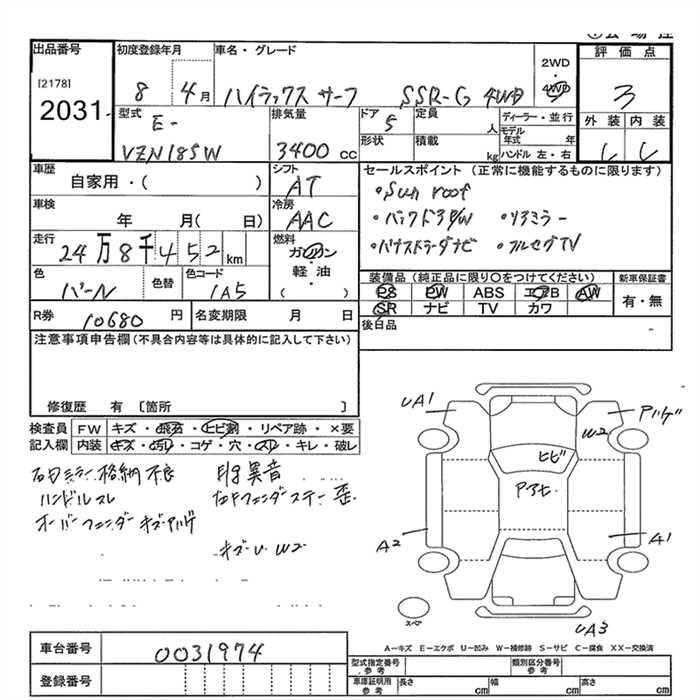 出品番号
[2178]
2031
初度登録年月
8 4月
車名・グレード
ハイラックス サーフ SSR-G 4WD
2WD
4WD
評価点
3
外装 内装
型式
E-
VZN185W
排気量
3400 cc
ドア
5
形状
定員
人
積載
kg
ディーラー・並行
モデル年式 年
ハンドル 左・右
車歴
自家用・( )
シフト
AT
セールスポイント (正常に機能するものに限ります)
・Sun roof
・バックドアP/W ・リアミラー
・フルセグTV
車検
年 月( 日)
冷房
AAC
走行
24万8千452km
燃料
ガソリン
・
軽・油
( )
色
パール
色替
色コード
1A5
装備品(純正品に限り○をつけてください)
PS PW ABS エアB AW
SR ナビ TV カワ
新車保証書
有・無
後日品
R券
10680円
名変期限 月 日
注意事項申告欄(不具合内容等は具体的に記入して下さい)
修復歴 有 〔箇所 〕
検査員 記入欄
FW キズ・飛石・ヒビ割・リペア跡・×要
内装 キズ・汚れ・コゲ・穴・スレ・キレ・破レ
右ミラー格納不良
異音
ハンドルスレ
右Fフェンダーステー歪
オーバーフェンダーキズ・ハゲ
キズ・U W2
UA1
ハゲ
W2
ヒビ
Pアヒ
A2
A1
スペア
UA3
A-キズ E-エクボ U-凹み W-補修跡 S-サビ C-腐食 XX-交換済
車台番号
0031974
登録番号
型式指定番号 参考
類別区分番号 参考
車庫証明用 参考
長さ cm
幅 cm
高さ cm